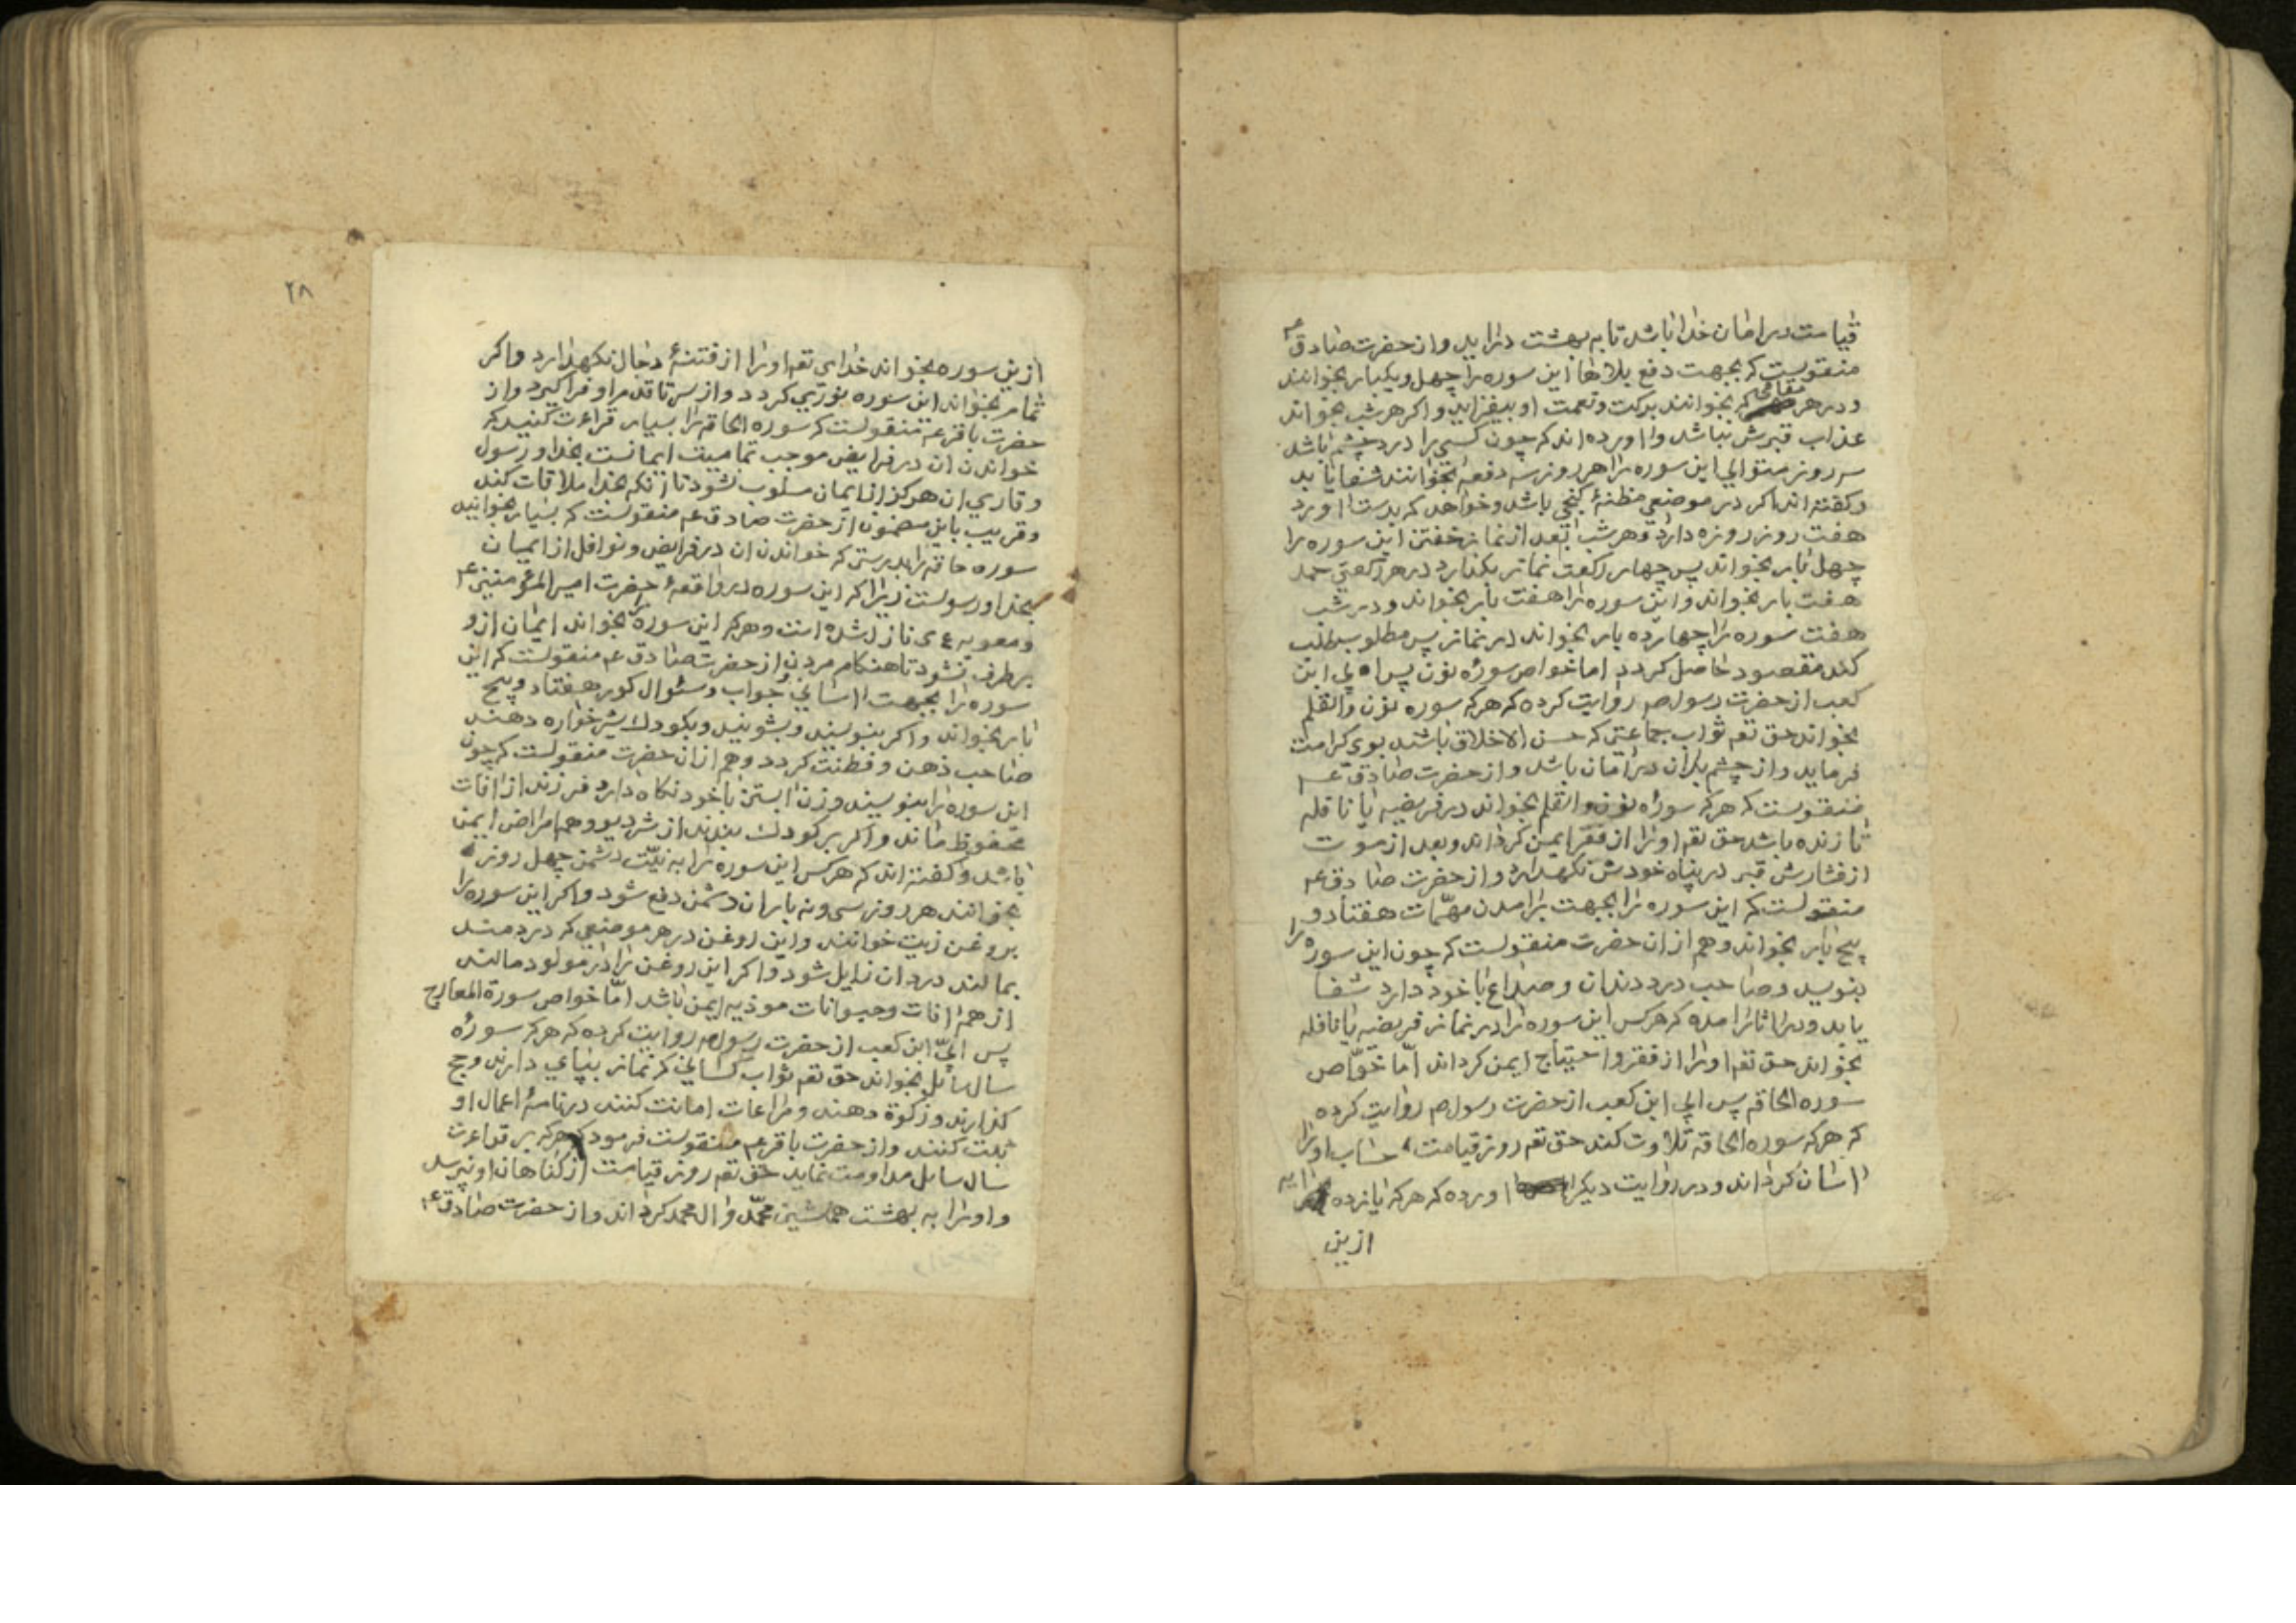 قیامت در امان خدا باشد تا به بهشت درآید و از حضرت صادق ع
منقولست که بجهت دفع بلاها این سوره را چهل و یکبار بخوانند
و در هر مقامی که بخوانند برکت و نعمت او بیفزاید و اکر هر شب بخواند
عذاب قبرش نباشد و اورده اند که چون کسی را درد چشم باشد
سه روز متوالی این سوره را هر روز سه دفعه بخوانند شفا یابد
و کفته اند اکر در موضعی مظنهٔ کنجی باشد و خواهد که بدست اورد
هفت روز روزه دارد و هر شب بعد از نماز خفتن این سوره را
چهل بار بخواند پس چهار رکعت نماز بکذارد در هر رکعتی حمد
هفت بار بخواند و این سوره را هفت بار بخواند و در شب
هفت سوره را چهارده بار بخواند در نماز پس مطلوب طلب
کند مقصود حاصل کردد اما خواص سورٔه نون پس ابی ابن
کعب از حضرت رسول ص روایت کرده که هرکه سوره نون والقلم
بخواند حق تعہ ثواب جماعتی که حسن الاخلاق باشند بوی کرامت
فرماید و از چشم بدان در امان باشد و از حضرت صادق ع
منقولست که هرکه سورٔه نون والقلم بخواند در فریضه یا نافله
تا زنده باشد حق تعہ اورا از فقر ایمن کرداند و بعد از موت
از فشارش قبر در پناه خودش نکهدارد و از حضرت صادق ع
منقولست که این سوره را بجهت برامدن مهمّات هفتاد و
پنج بار بخواند و هم از ان حضرت منقولست که چون این سوره را
بنویسد و صاحب درد دندان و صداع با خود دارد شفا
یابد و در اثار امده که هرکس این سوره را در نماز فریضه یا نافله
بخواند حق تعہ اورا از فقر و احتیاج ایمن کرداند امّا خواص
سوره الحاقه پس ابی ابن کعب از حضرت رسول ص روایت کرده
که هرکه سوره الحاقه تلاوت کند حق تعہ روز قیامت حساب اورا
اسان کرداند و در روایت دیکر اورده که هرکه یازده ایه
ازین
۲۸
ازین سوره بخواند خدای تعہ اورا از فتنهٔ دجال نکهدارد و اکر
تمام بخواند این سوره نوری کردد و از سر تا قدم او فراکیرد و از
حضرت باقر ع منقولست که سوره الحاقه را بسیار قراءت کنید که
خواندن ان در فرایض موجب تمامیت ایمانست بخدا و رسول
و قاری ان هرکز از ایمان مسلوب نشود تا انکه بخدا ملاقات کند
و قریب باین مضمون از حضرت صادق ع منقولست که بسیار بخوانید
سوره حاقه را بدرستی که خواندن ان در فرایض و نوافل از ایمان
بخدا و رسولست زیرا که این سوره در واقعهٔ حضرت امیر المؤمنین ع
و معویه نازل شده است و هرکه این سوره را بخواند ایمان ازو
برطرف نشود تا هنکام مردن از حضرت صادق ع منقولست که این
سوره را بجهت اسانی جواب و سئوال کور هفتاد و پنج
بار بخواند و اکر بنویسند و بشویند و بکودک شیرخواره دهند
صاحب ذهن و فطنت کردد و هم از ان حضرت منقولست که چون
این سوره را بنویسند و زن ابستن با خود نکاه دارد فرزند از افات
محفوظ ماند و اکر بر کودک بندند از شر دیو و همه امراض ایمن
باشد و کفته اند که هرکس این سوره را به نیّت دشمن چهل روز
بخوانند هر روز سی و نه بار ان دشمن دفع شود و اکر این سوره را
بر روغن زیت خوانند و این روغن در هر موضعی که دردمند
بمالند درد ان زایل شود و اکر این روغن را در مولود مالند
از همه افات و حیوانات موذیه ایمن باشد امّا خواص سورة المعارج
پس ابیّ ابن کعب از حضرت رسول ص روایت کرده که هرکه سورٔه
سال سائل بخواند حق تعہ ثواب کسانی که نماز بپای دارند و حج
کذارند و زکوة دهند و مراعات امانت کنند در نامهٔ اعمال او
ثبت کنند و از حضرت باقر ع منقولست فرمود که هرکه بر قراءت
سال سایل مداومت نماید حق تعہ روز قیامت از کناهان او نپرسد
و اورا به بهشت همنشین محمّد و ال محمد کرداند و از حضرت صادق ع